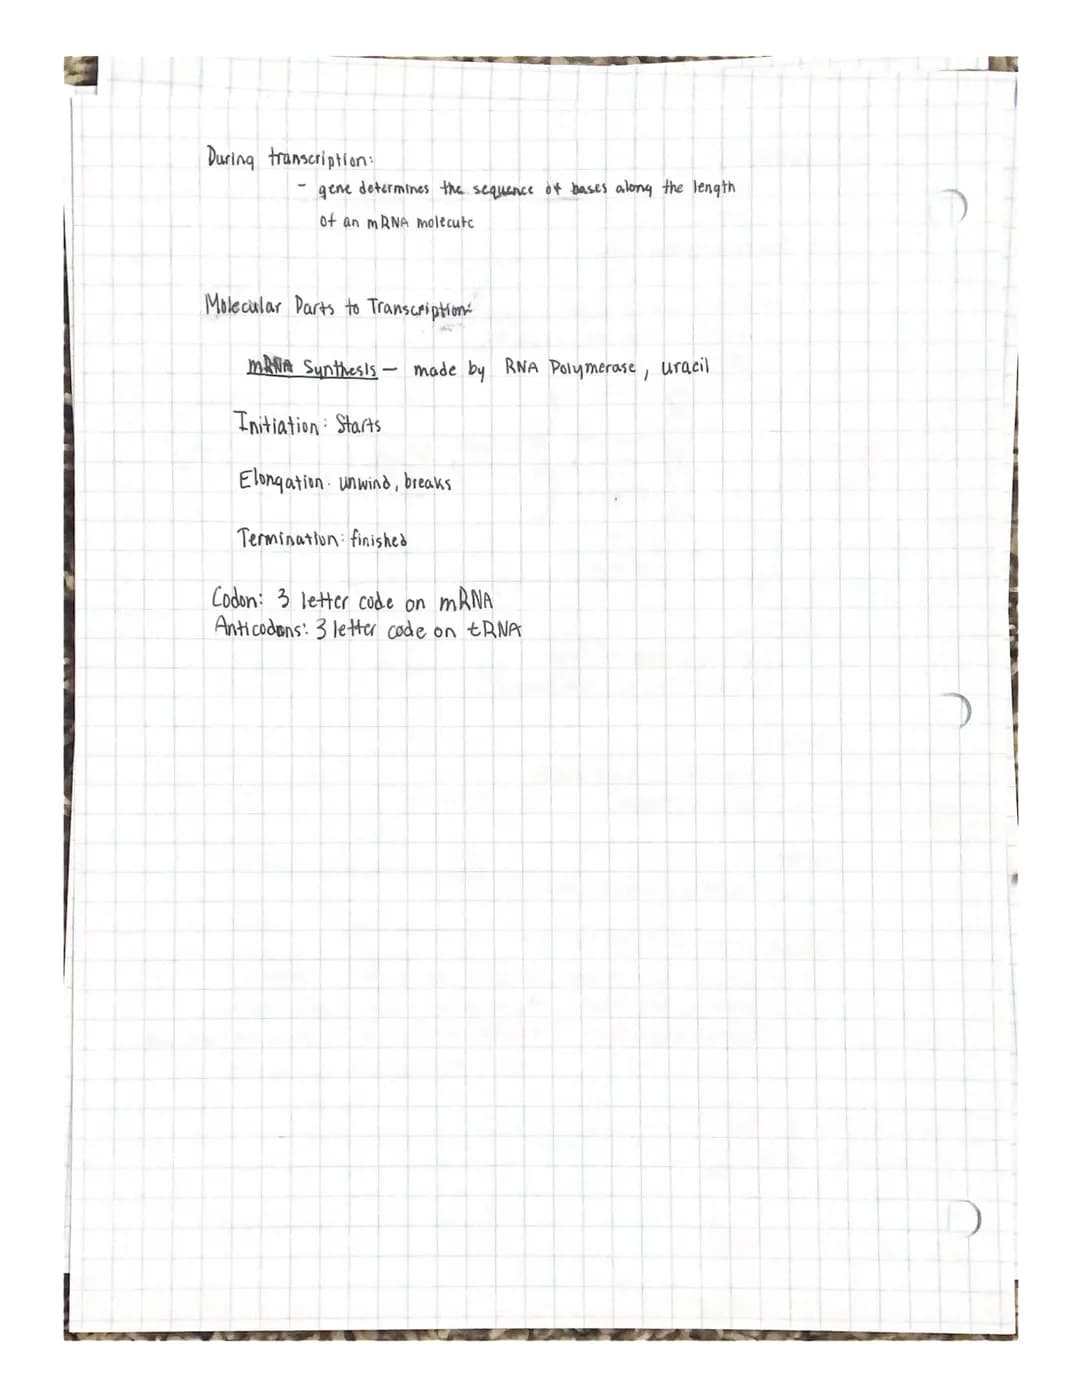 During transcription:
- gene determines the sequence of bases along the length
of an mRNA molecule
Molecular Parts to Transcription:
mRNA Synthesis — made by RNA Polymerase, uracil
Initiation: Starts
Elongation: unwind, breaks
Termination: finished
Codon: 3 letter code on mRNA
Anticodons: 3 letter code on tRNA